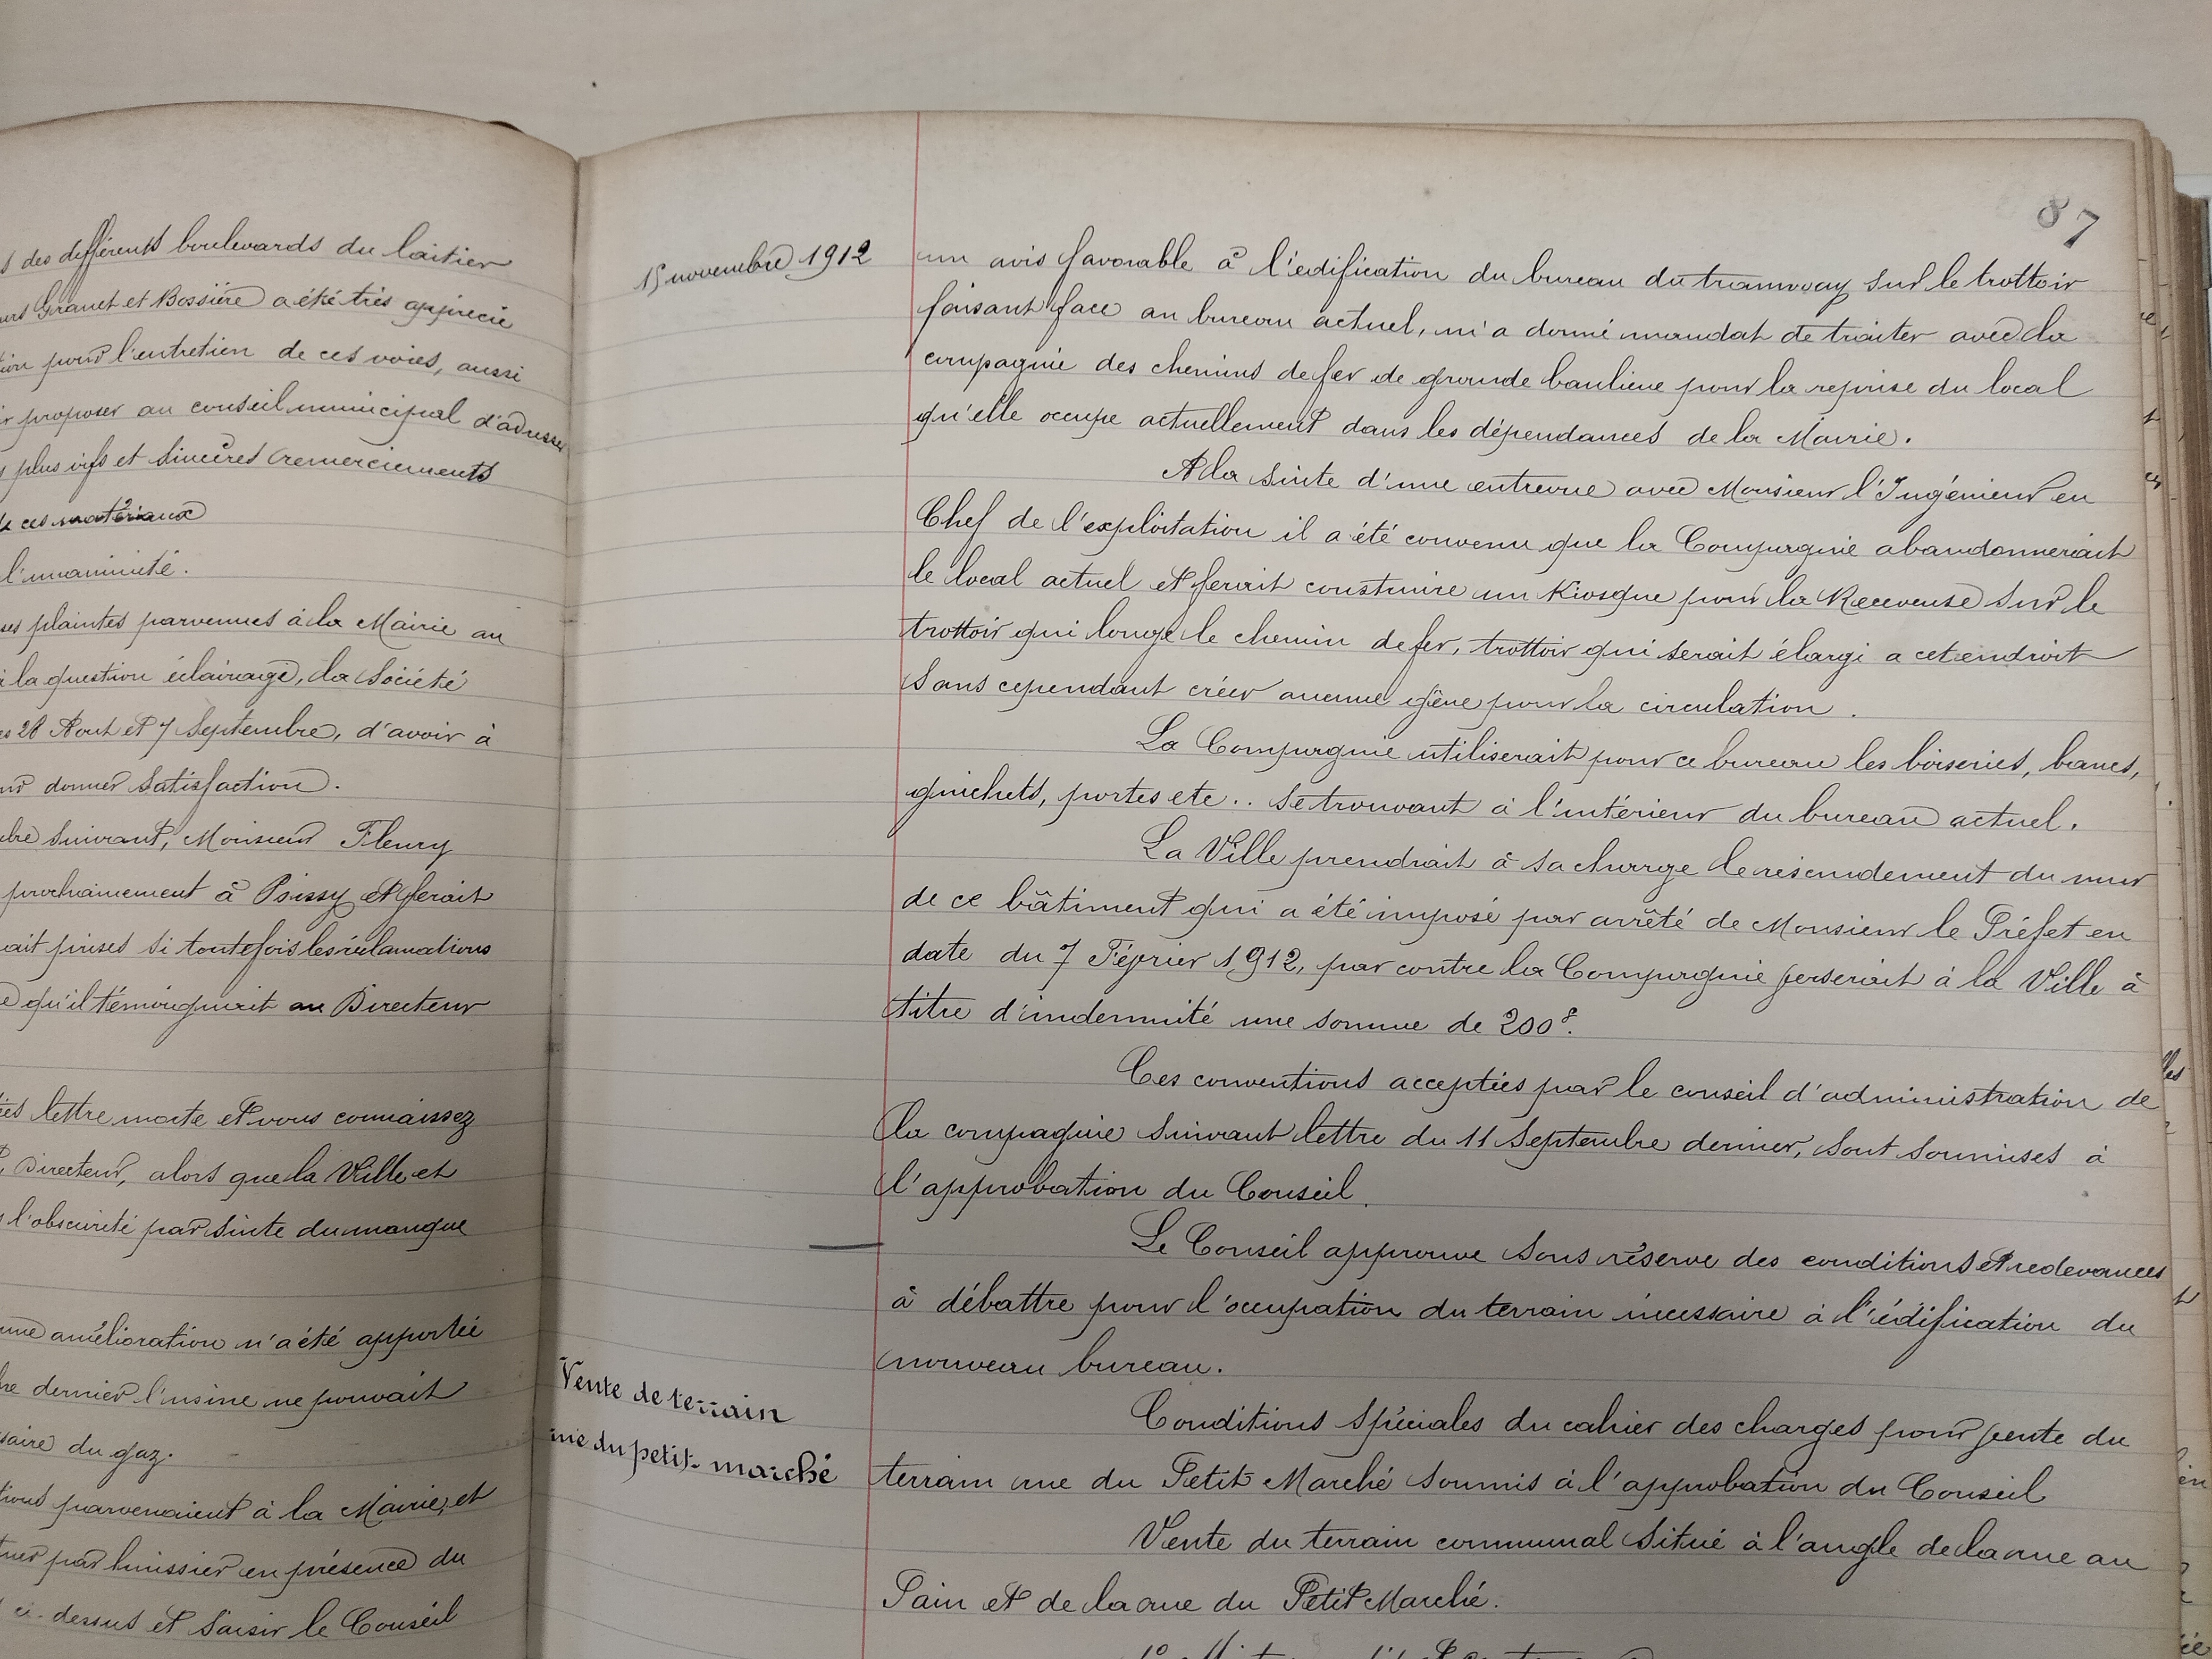 des différents boulevards du laitier
Granet et Bossière a été très apprécié
pour l'entretien de ces voies, aussi
proposer au conseil municipal d'adresser
plus vifs et sincères remerciements
de ces matériaux
l'unanimité.
ses plaintes parvenues à la Mairie au
la question éclairage, la Société
28 Aout et 7 Septembre, d'avoir à
donner satisfaction.
suivant, Monsieur Fleury
prochainement à Poissy et ferait
ait prises si toutefois les réclamations
qu'il témoignait au Directeur
lettre morte et vous connaissez
Directeur, alors que la Ville et
l'obscurité par suite du manque
amélioration n'a été apportée
dernier l'usine ne pouvait
saire du gaz.
parvenaient à la Mairie, et
par huissier en présence du
ci-dessus et saisir le Conseil
87
15 novembre 1912
un avis favorable à l'édification du bureau du tramway sur le trottoir
faisant face au bureau actuel, m'a donné mandat de traiter avec la
compagnie des chemins de fer de grande banlieue pour la reprise du local
qu'elle occupe actuellement dans les dépendances de la Mairie.
A la suite d'une entrevue avec Monsieur l'Ingénieur en
Chef de l'exploitation il a été convenu que la Compagnie abandonnerait
le local actuel et ferait construire un Kiosque pour la Receveuse sur le
trottoir qui longe le chemin de fer, trottoir qui serait élargi a cet endroit
sans cependant créer aucune gêne pour la circulation.
La Compagnie utiliserait pour ce bureau les boiseries, bancs,
guichets, portes etc.. se trouvant à l'intérieur du bureau actuel.
La Ville prendrait à sa charge le réscindement du mur
de ce bâtiment qui a été imposé par arrêté de Monsieur le Préfet en
date du 7 Février 1912, par contre la Compagnie verserait à la Ville à
titre d'indemnité une somme de 200f.
Ces conventions acceptées par le conseil d'administration de
la compagnie suivant lettre du 11 Septembre dernier, sont soumises à
l'approbation du Conseil.
Le Conseil approuve sous réserve des conditions et redevances
à débattre pour l'occupation du terrain nécessaire à l'édification du
nouveau bureau.
Vente de terrain
rue du petit-marché
Conditions spéciales du cahier des charges pour vente du
terrain rue du Petit Marché soumis à l'approbation du Conseil
Vente du terrain communal situé à l'angle de la rue au
Pain et de la rue du Petit Marché.